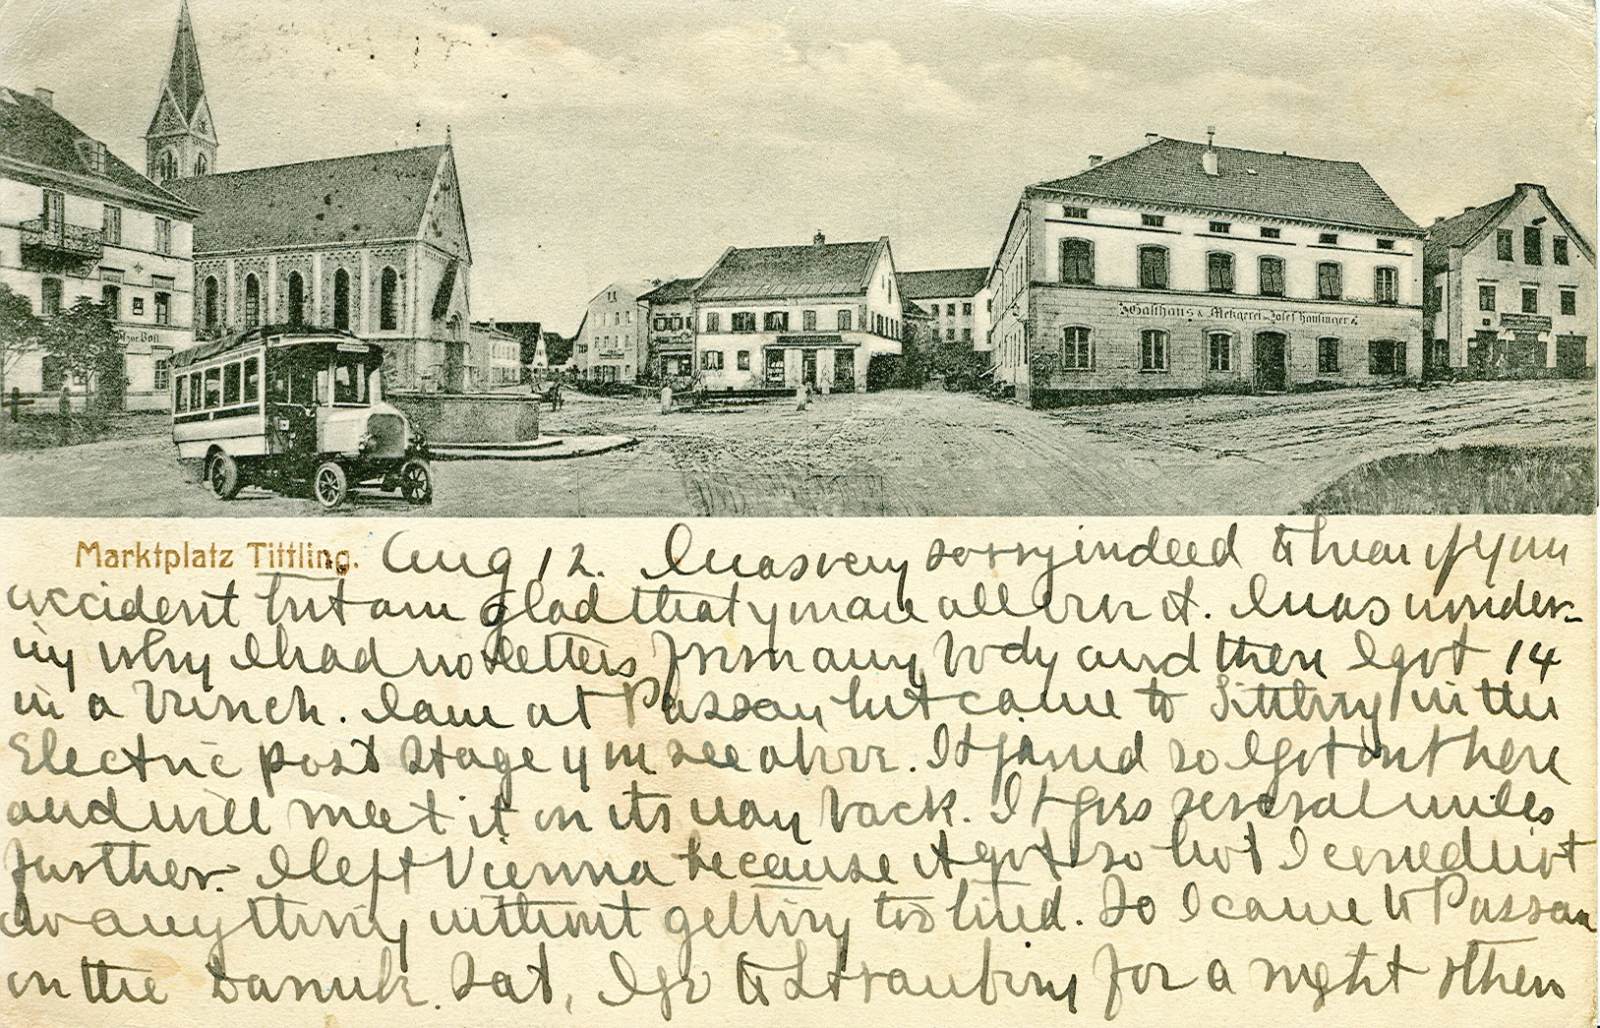 Gasthaus & Metzgerei Josef
zur Post
Marktplatz Tittling.
Aug 12. I was very sorry indeed to hear of your
accident but am glad that you are all over it. I was wonder-
ing why I had no letters from any body and then I got 14
in a bunch. I am at Passau but came to Tittling in the
Electric post stage you see above. It so I got out here
and will meet it on its way back. It goes several miles
further. I left Vienna because it got so hot I could not
do anything without getting too tired. So I came to Passau
on the Danube. Sat, I go to Straubing for a night then